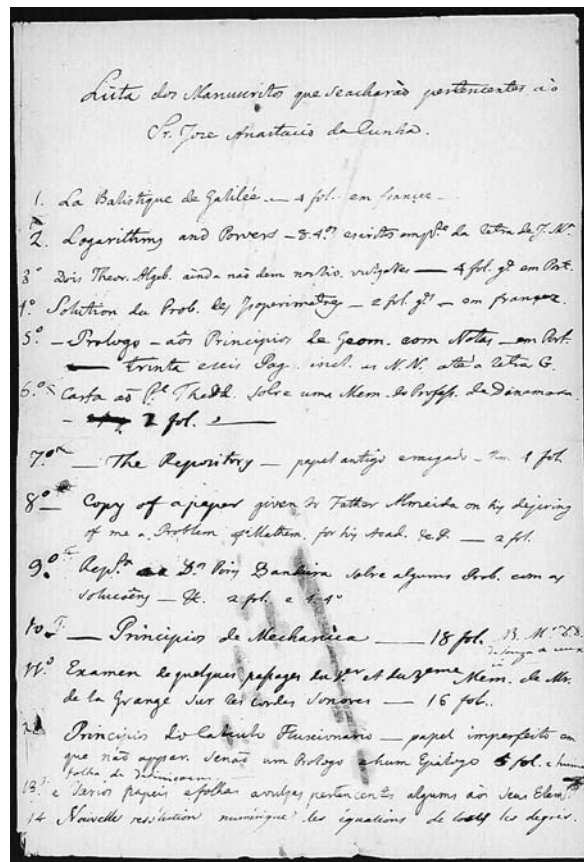 Lista dos Manuscritos que se acharão pertencentes ao
Sr. Jose Anastacio da Cunha.
1. La Balistique de Galilée — 4 fol. em francez
2. Logarithms and Powers — 8. 4.os escritos em da letra de J. M.
3º Dois Theor. Algeb. ainda não dem vulgares — 4 fol. gr. em Port.
4º Solution du Prob. des Isoperimetres — 2 fol. gr. — em francez.
5º — Prologo — aos Principios de Geom. com Notas — em Port.
— trinta e seis Pag. incl. as N.N. até a letra G.
6º Carta ao Pe. Theod. sobre uma Mem. do Profess. de Dinamarca
— 2 fol. —
7º — The Repository — papel antigo e rasgado — 1 fol
8º — Copy of a paper given to Father Almeida on his desiring
of me a Problem of Mathem. for his Acad. &c. — 2 fol.
9º Repta. a Dn. Bandeira sobre alguns Prob. com as
soluções — &. 2 fol. e 1. 4º
10 — Principios de Mechanica — 18 fol.
11º Examen de quelques passages du 1er et du 2eme Mem. de Mr.
de la Grange sur les cordes sonores — 16 fol.
Principios do Calculo Fluxionario — papel imperfeito em
que não appar. senão um Prologo e hum Epilogo 5 fol. e huma
folha de
13º e Varios papeis e folhas avulsas pertencentes alguns aos seus Elem.tos
14 Nouvelle resolution numérique des équations de tous les degrés.